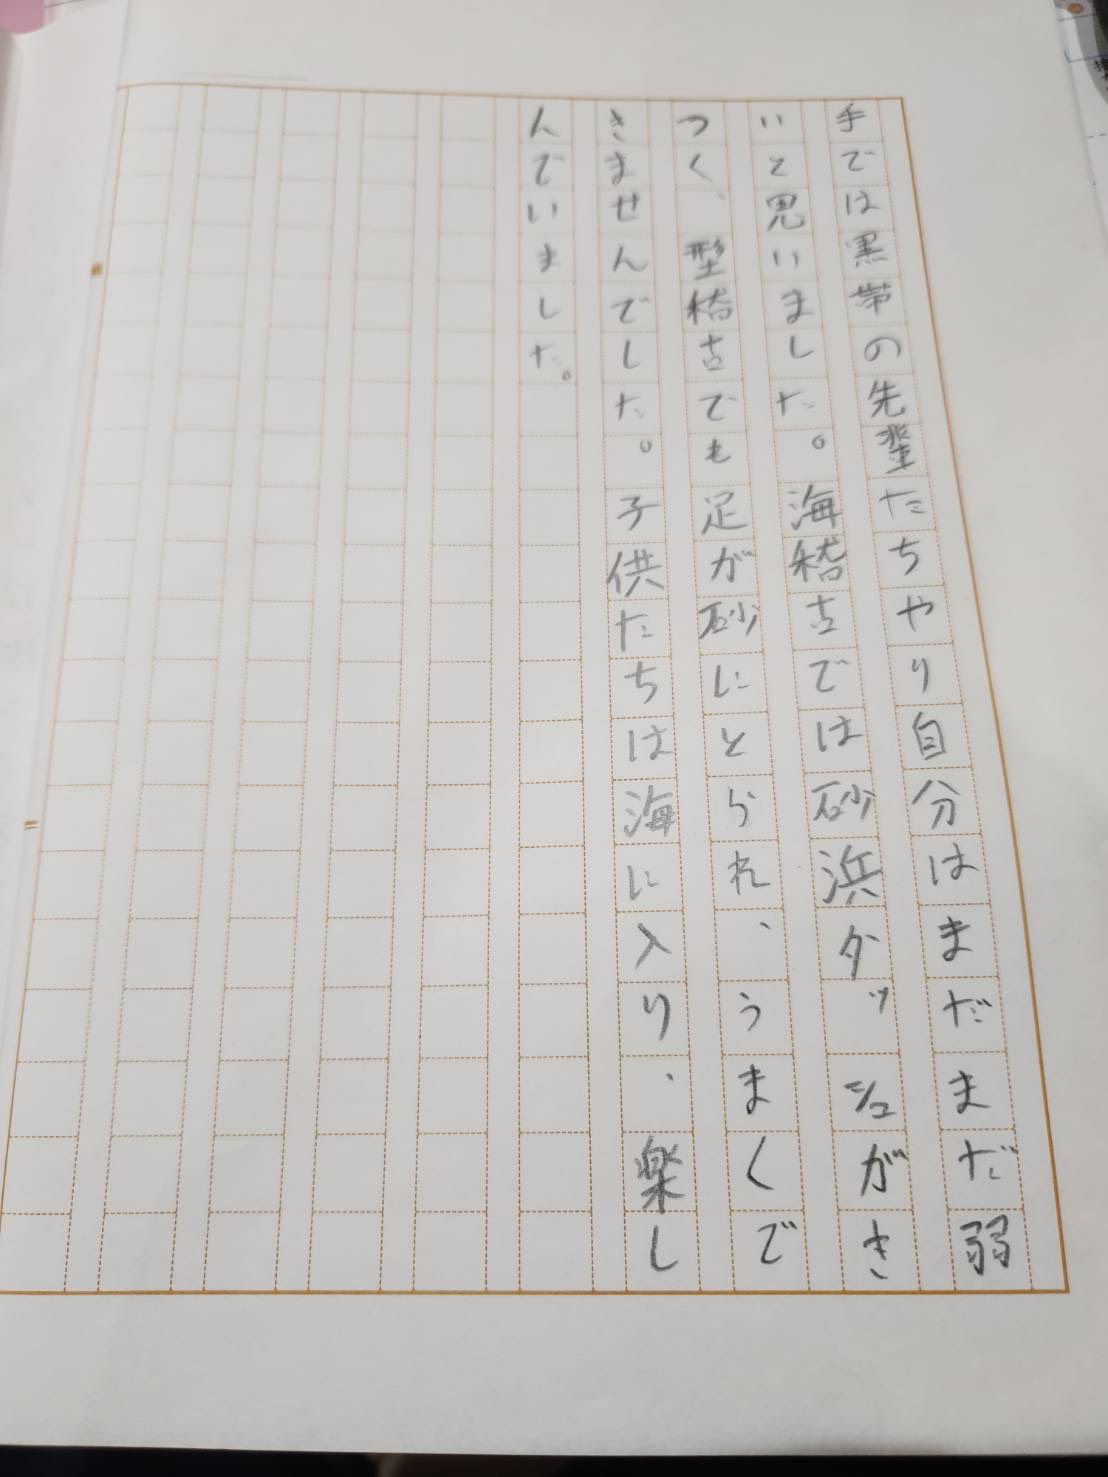 手では黒帯の先輩たちやり自分はまだまだ弱
いと思いました。海稽古では砂浜ダッシュがき
つく、型稽古でも足が砂にとられ、うまくで
きませんでした。子供たちは海に入り、楽し
んでいました。